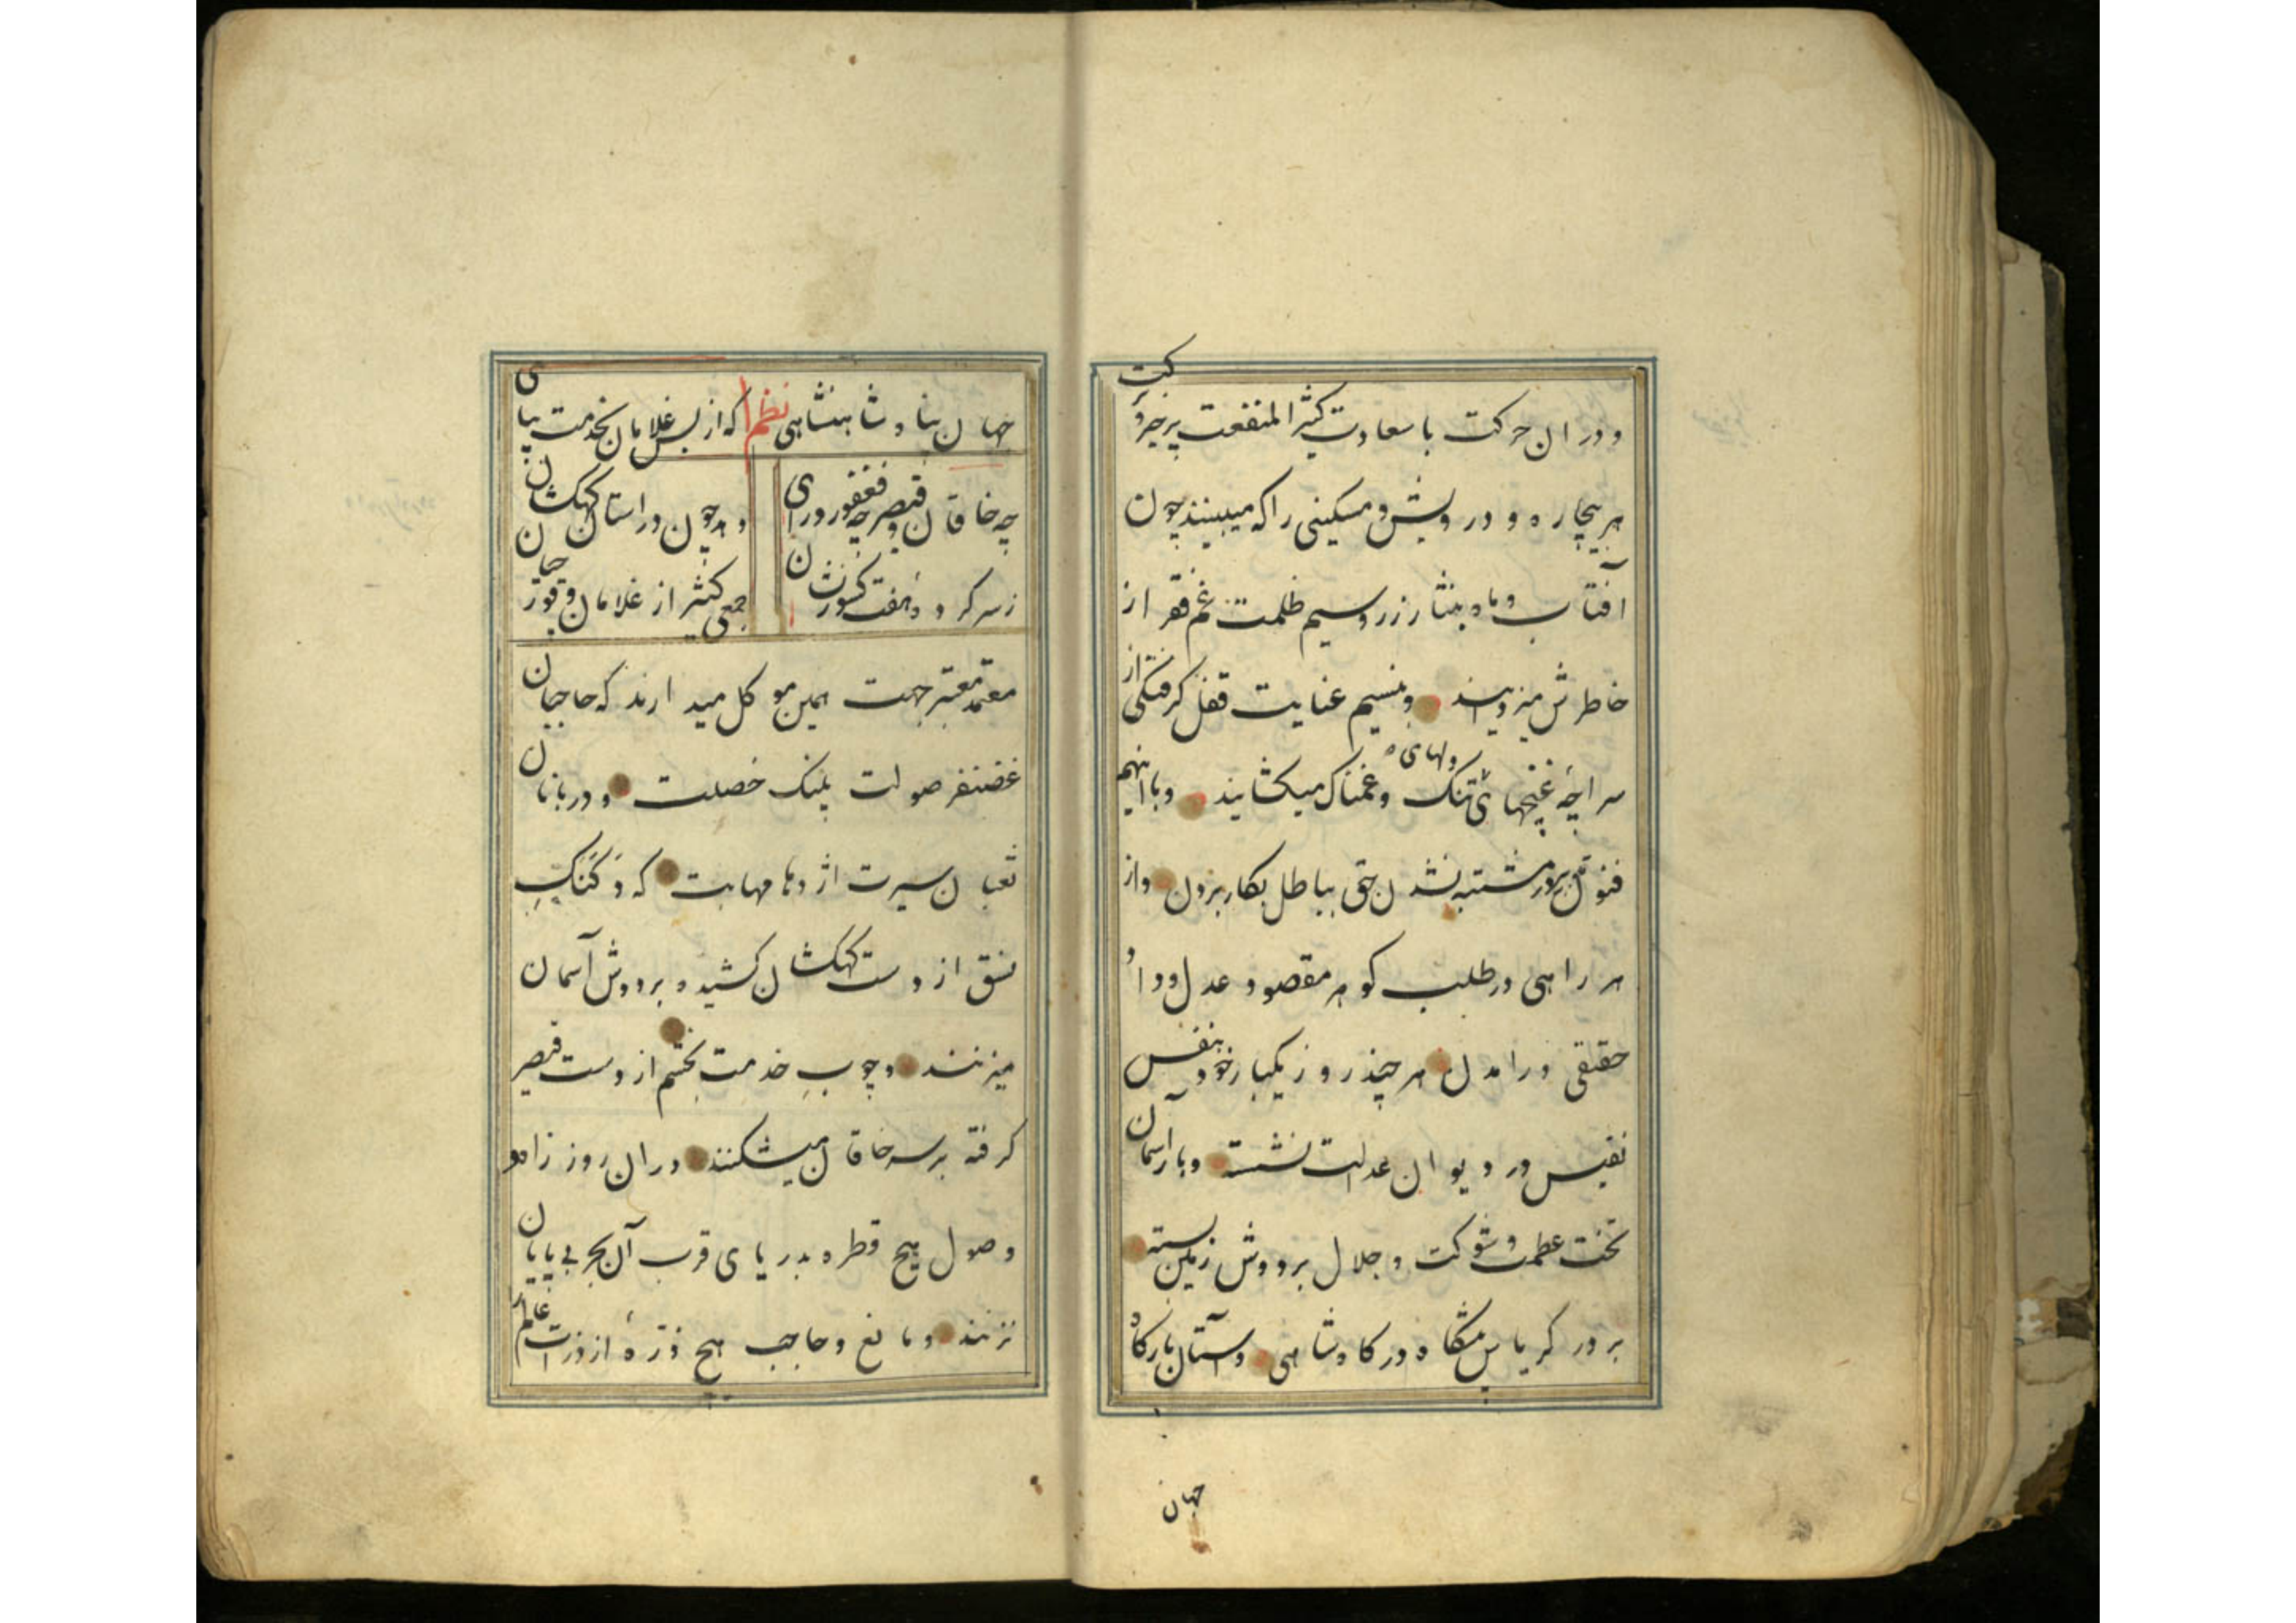 و در ان حرکت با سعادت کثیر المنفعت پر خیر و برکت
هر بیچاره و درویش و مسکینی را که میبینند چون
آفتاب و ماه بنثار زر و سیم ظلمت غم فقر از
خاطرش میزدایند و بنسیم عنایت قفل کرفتکی از
سراچهٔ غنچهای تنک دلهای غمناک میکشایند و با اینهم
فنون بی مشتبه نشدن حق بباطل بکار بردن و از
هر راهی در طلب کوهر مقصود عدل و داد
حقیقی در امدن هر چند روز یکبار خود بنفس
نفیس در دیوان عدالت نشسته و بار آسمان
تخت عظمت و شوکت و جلال بر دوش زمین بسته
بر در کریاس پیشکاه درکاه شاهی و آستان بارکاه
جهان
جهان پناه شاهنشاهی نظم که از بس غلامان بخدمت بپای
چه خاقان و قیصر چه فغفور و رای
همچون در استان کهکشان
ز سر کرده هفت کشور نشان
جمعی کثیر از غلامان و قورچیان
معتمد معتبر جهت همین موکل میدارند که حاجبان
غضنفر صولت پلنک خصلت و دربانان
ثعبان سیرت اژدها مهابت که دکنک
نسق از دست کهکشان کشیده بر دوش آسمان
میزنند و چوب خدمت بخشم از دست قیصر
کرفته بر سر خاقان میشکنند در ان روز راه
وصول هیچ قطره بدریای قرب آن بحر بی پایان
نزنند و مانع و حاجب هیچ ذرهٔ از ذرات عالم